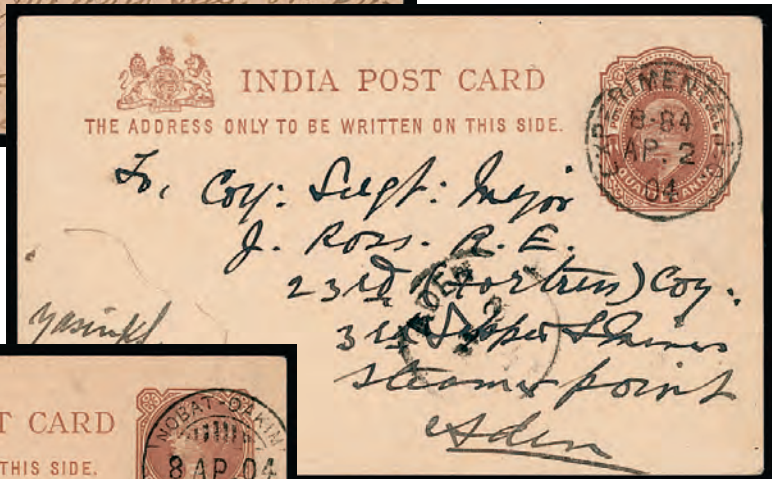 INDIA POST CARD
THE ADDRESS ONLY TO BE WRITTEN ON THIS SIDE.
B-84
AP. 2
04
QUARTER ANNA
To, Coy: Sergt: Major
J. Ross. R. E.
23rd (Fortress) Coy:
3rd Sapper & Miners
Steamer point
Aden
ADEN
T CARD
THIS SIDE.
NOBAT-DAKIM
8 AP 04